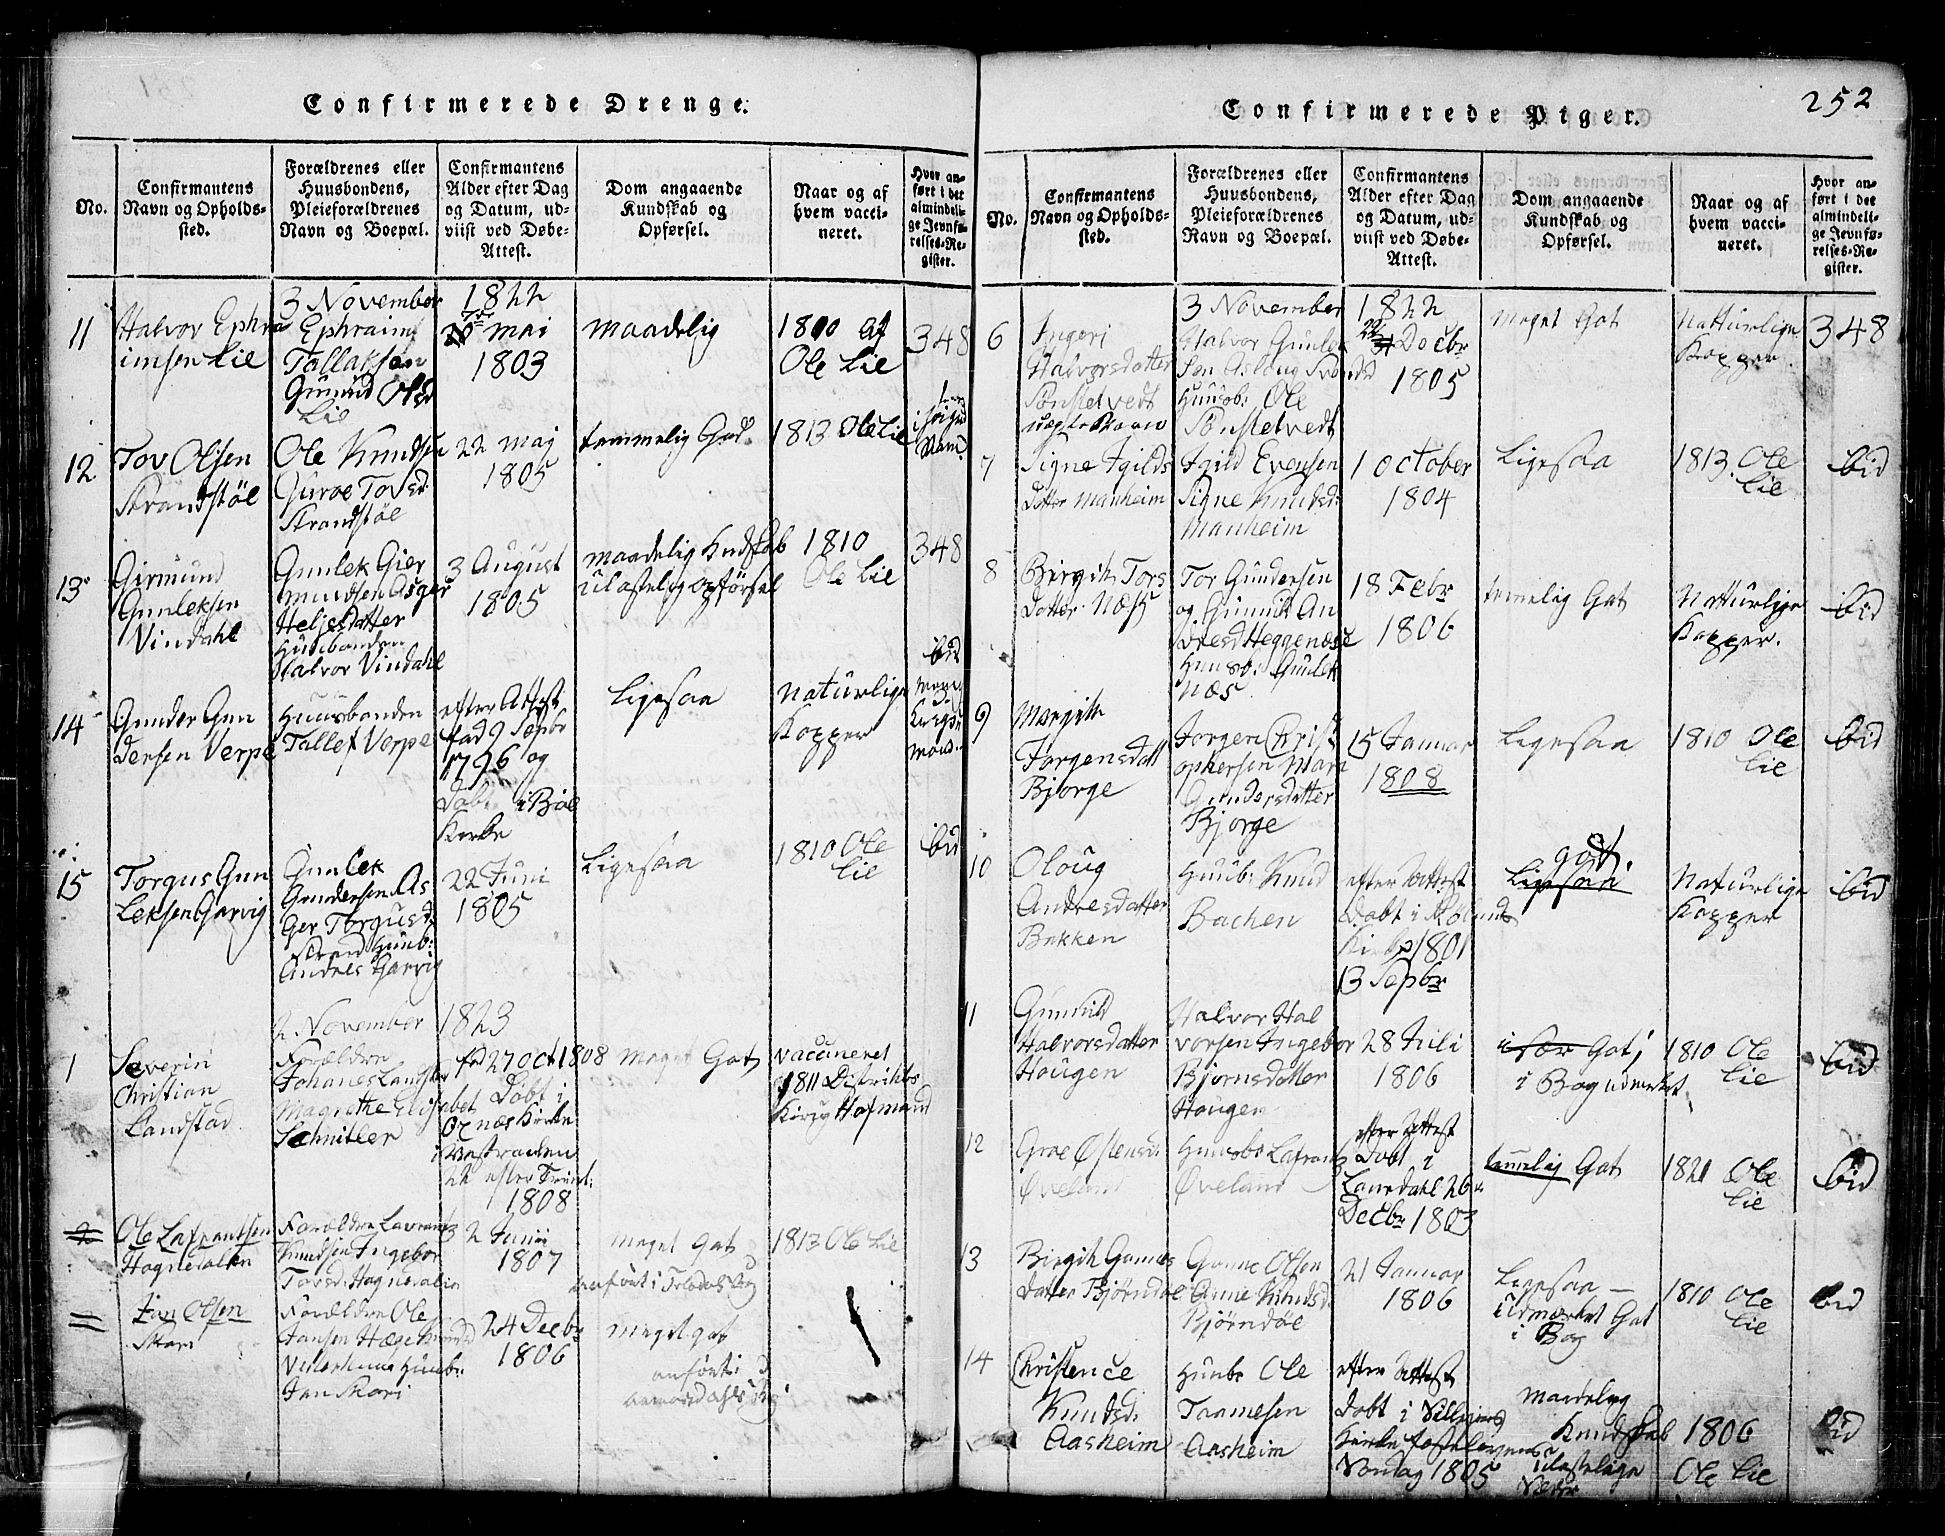 Confirmerede Drenge.
No.
Confirmantens
Navn og Opholds-
sted.
Forældrenes eller
Huusbondens,
Pleieforældrenes
Navn og Boepæl.
Confirmantens
Alder efter Dag
og Datum, ud-
viist ved Døbe-
Attest.
Dom angaaende
Kundskab og
Opførsel.
Naar og af
hvem vacci-
neret.
Hvor an-
ført i det
almindeli-
ge Jevnfø-
relses-Re-
gister.
3 November 1822
11
Halvor Ephra
imsen Lie
Ephraim
Tallaksen
Gunild Olsd
Lie
mai
1803
maadelig
1810 af
Ole Lie
348
12
Tov Olsen
Strandstøl
Ole Knudsen
Juroe Tovsd
Strandstøl
22 maj
1805
temmelig God
1813 Ole Lie
13
Girmund
Gunleksen
Vindahl
Gunlek Gier
mundsen Asger
Heljesdatter
Huusbonden
Halvor Vindahl
3 August
1805
maadelig Kndskab
ulastelig opførsel
1810
Ole Lie
348
14
Gunder Gun
dersen Verpe
Huusbonden
Tallef Verpe
efter Attest
fød 9 Sepbr
1796 og
Døbt i Bøe
Kirke
Ligesaa
Naturlige
Kopper
ibid
15
Torgus Gun
Leksen Garvig
Gunlek
Gundersen As
Ger Torgusd
Strand Huusb:
Andres Garvig
22 Juni
1805
Ligesaa
1810 Ole
Lie
ibid
2 November 1823
1
Severin
Christian
Landstad
Forældren
Johanes Landstad
Magrethe Elisabet
Schnitler
fød 27 Oct 1808
Døbt i
Øxnæs Kirke
i Vestraalen
22 efter Trinit:
1808
meget Gat
vaccineret
1811 Distrikts
Kirug Hofmand
2
Ole Lafrantsen
Hagnedalen
Forældre Lavrants
Knudsen Ingebor
Tovsd: Hagnedalen
2 Junii
1807
meget Gat
anført i Telodals Bog
1813 Ole Lie
Jan Olsen
Skori
Forældre Ole
Jansen Hæge Knudsd
Huusb:
Jan Skori
24 Decbr
1806
meget gat
anført i
aamotsdahls Bog
Confirmerede Piger.
252
No.
Confirmantens
Navn og Opholds-
sted.
Forældrenes eller
Huusbondens,
Pleieforældrenes
Navn og Boepæl.
Confirmantens
Alder efter Dag
og Datum, ud-
viist ved Døbe-
Attest.
Dom angaaende
Kundskab og
Opførsel.
Naar og af
hvem vacci-
neret.
Hvor an-
ført i det
almindeli-
ge Jevnfø-
relses-Re-
gister.
3 November 1822
6
Ingeri
Halvorsdatter
Sønstelvedt
uægte Barn
Halvor Gunlek
Sen Aslaug Svends
Huusb: Ole
Sønstelvedt
22 Decbr
1805
meget Gat
Natturlige
Kopper
348
7
Signe Igilds
Datter Manheim
Igild Evensen
Signe Knudsd:
Manheim
1 October
1804
Ligesaa
1813 Ole
Lie
ibid
8
Birgith Tors
Datter Næs
Tor Gundersen
og Gunild An
dresd Heggenæse
Huusb: Gunlek
Næs
18 Febr
1806
temelig Gat
Natturlige
Kopper.
ibid
9
Margith
Jorgensdatt
Bjorge
Jorgen Christ
ophersen Mari
Gundersdatter
Bjorge
15 Januar
1808
Ligesaa
1810 Ole
Lie
ibid
10
Oloug
Andresdatter
Bakken
Huusb: Knud
Bachen
efter Attest
Døbt i Molands
Kirke 1801
13 Sepbr
godt.
Ligesaa
Naturlige
Kopper
ibid
11
Gunild
Halvorsdatter
Hougen
Halvor Hal
vorsen Ingebor
Bjornsdatter
Hougen
28 Juli
1806
især Gat
i Bog udmerket
1810 Ole
Lie
ibid
12
Groe Østensd:
Øveland
Huusb: Lafrants
Øveland
efter Attest
Døbt i
Laurdahl 26
Decbr 1803
temelig Gat
1821 Ole
Lie
ibid
13
Birgith Gunnes
Datter Bjørndal
Gunne Olsen
Anne Knudsd:
Bjørndal
21 Januar
1806
Ligesaa
udmærket Gat
i Bog
1810 Ole
Lie
ibid
14
Christence
Knudsd:
Aasheim
Huusb: Ole
Tarmesen
Aasheim
efter Attest
Døbt i
Kirke Fastelavens
Søndag 1805
maadelig
Kundskab
ulastelige
1806
Ole Lie
ibid